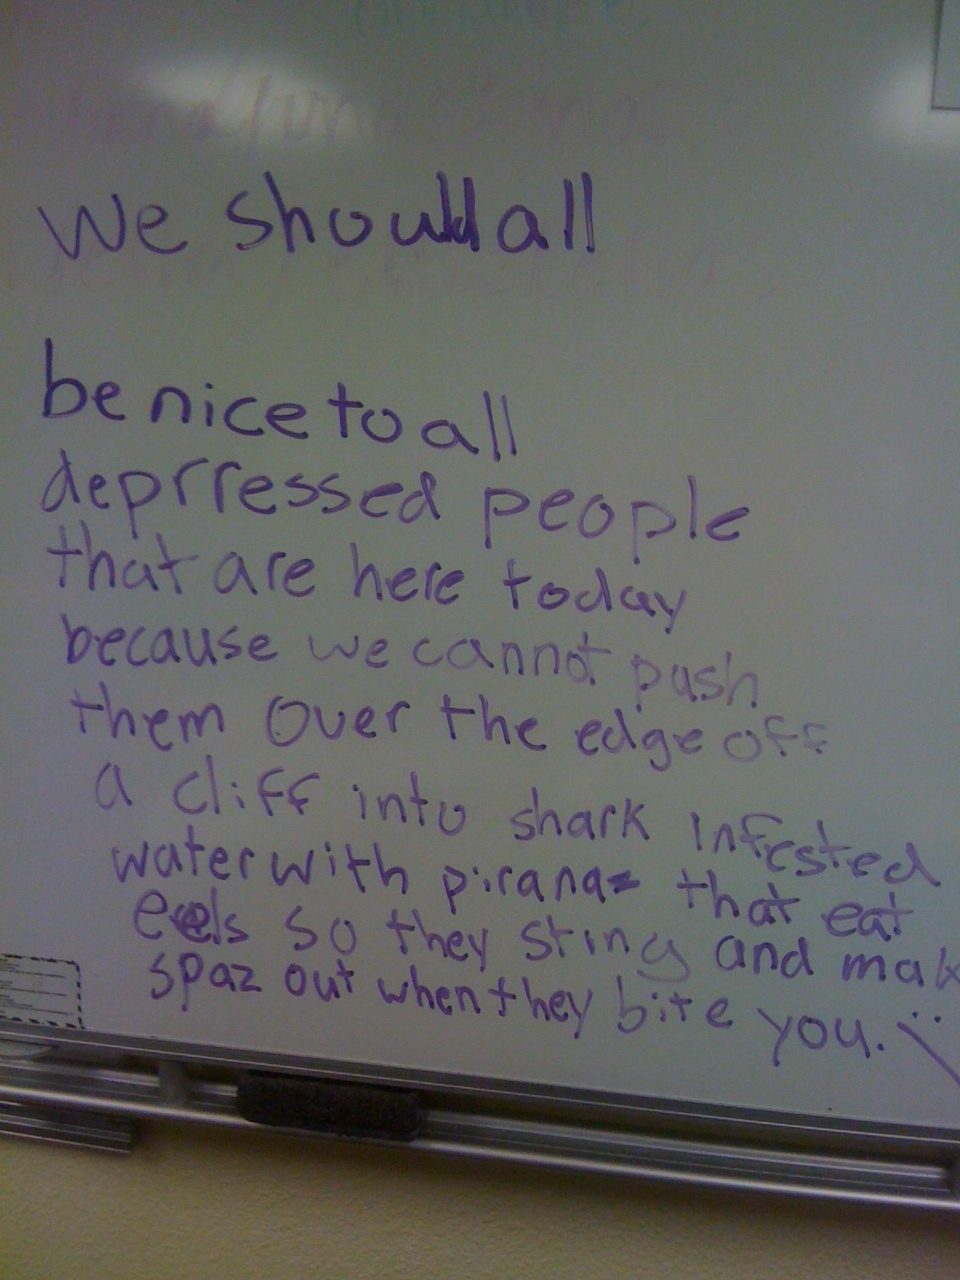 we should all
be nice to all
deprressed people
that are here today
because we cannot push
them over the edge off
a cliff into shark infested
water with piranas that eat
eels so they sting and mak
spaz out when they bite you. :)